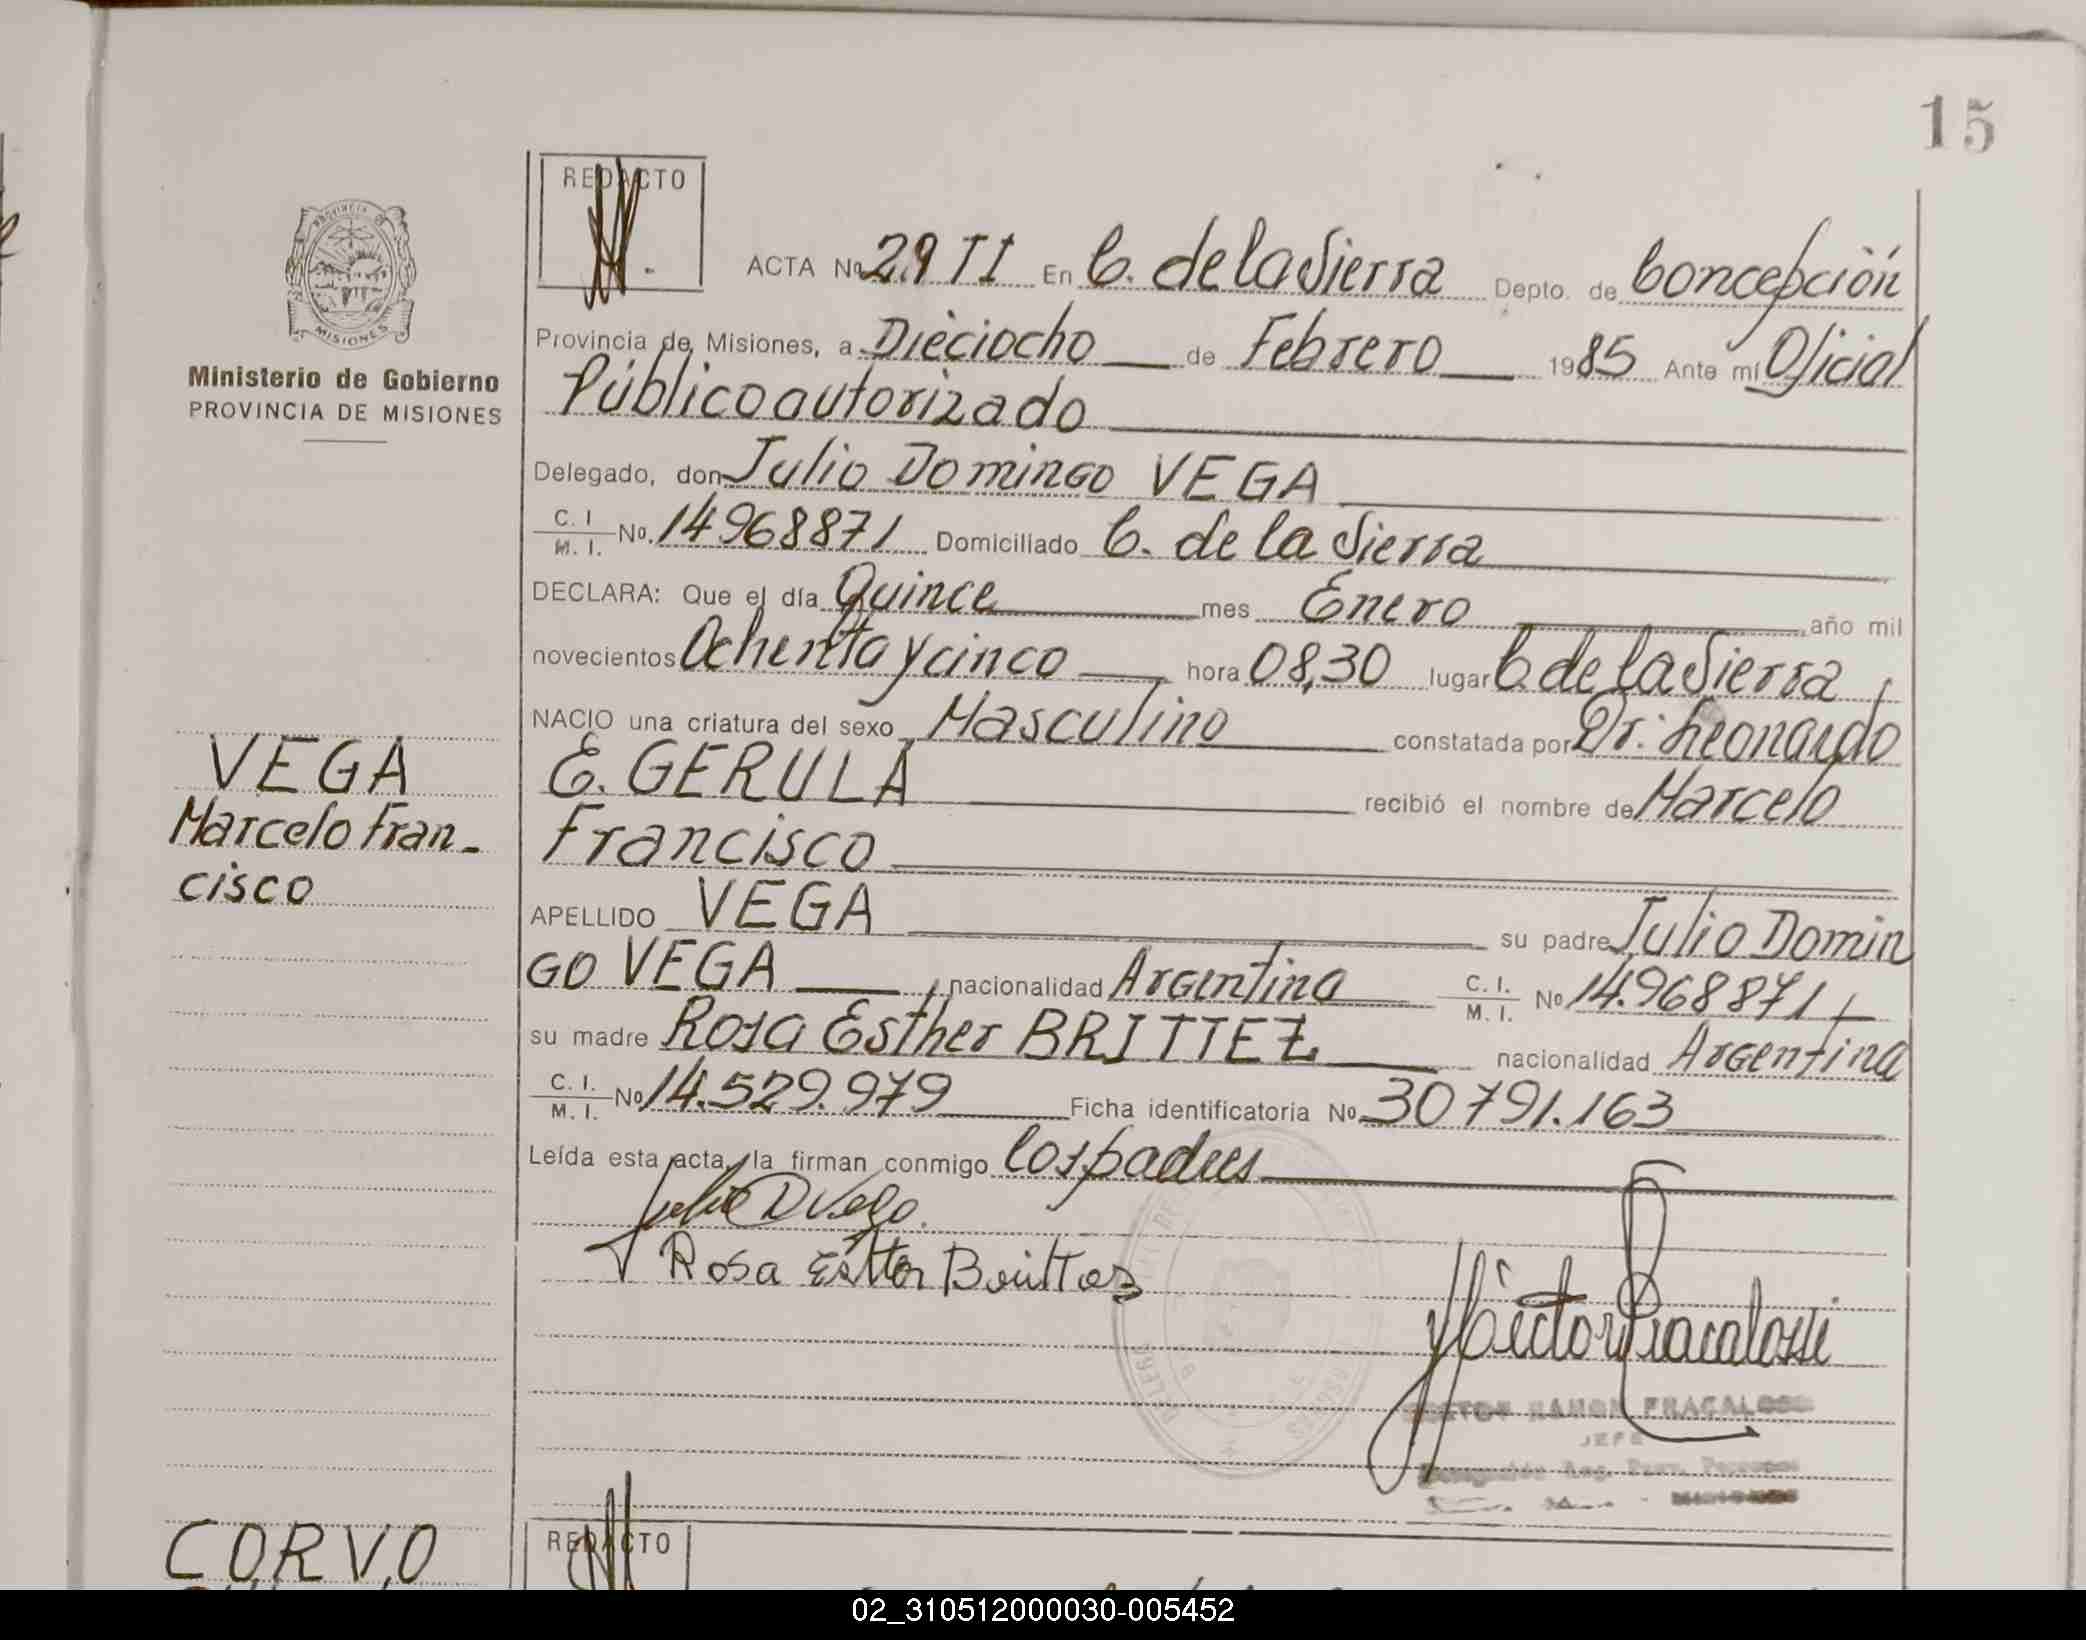 15
REDACTO
PROVINCIA DE
MISIONES
Ministerio de Gobierno
PROVINCIA DE MISIONES
ACTA Nº 29 TI En C. de la Sierra Depto. de Concepción
Provincia de Misiones, a Dieciocho de Febrero 1985 Ante mí Oficial
Público autorizado
Delegado, don Julio Domingo VEGA
C. I. M. I. No. 14968871 Domiciliado C. de la Sierra
DECLARA: Que el día Quince mes Enero año mil
novecientos Ochenta y cinco hora 08,30 lugar C. de la Sierra,
NACIO una criatura del sexo Masculino constatada por Dr. Leonardo
E. GERULA recibió el nombre de Marcelo
Francisco
APELLIDO VEGA su padre Julio Domin
GO VEGA, nacionalidad Argentina C. I. M. I. Nº 14.968871
su madre Rosa Esther BRITTEZ nacionalidad Argentina
C. I. M. I. Nº 14.529.979 Ficha identificatoria Nº 30791.163
Leída esta acta, la firman conmigo los padres
Julio D Vega.
Rosa Ester Brittez
Hector Fracalossi
HECTOR RAMON FRACALOSSI
JEFE
VEGA
Marcelo Fran-
cisco
CORVO
REDACTO
02_310512000030-005452